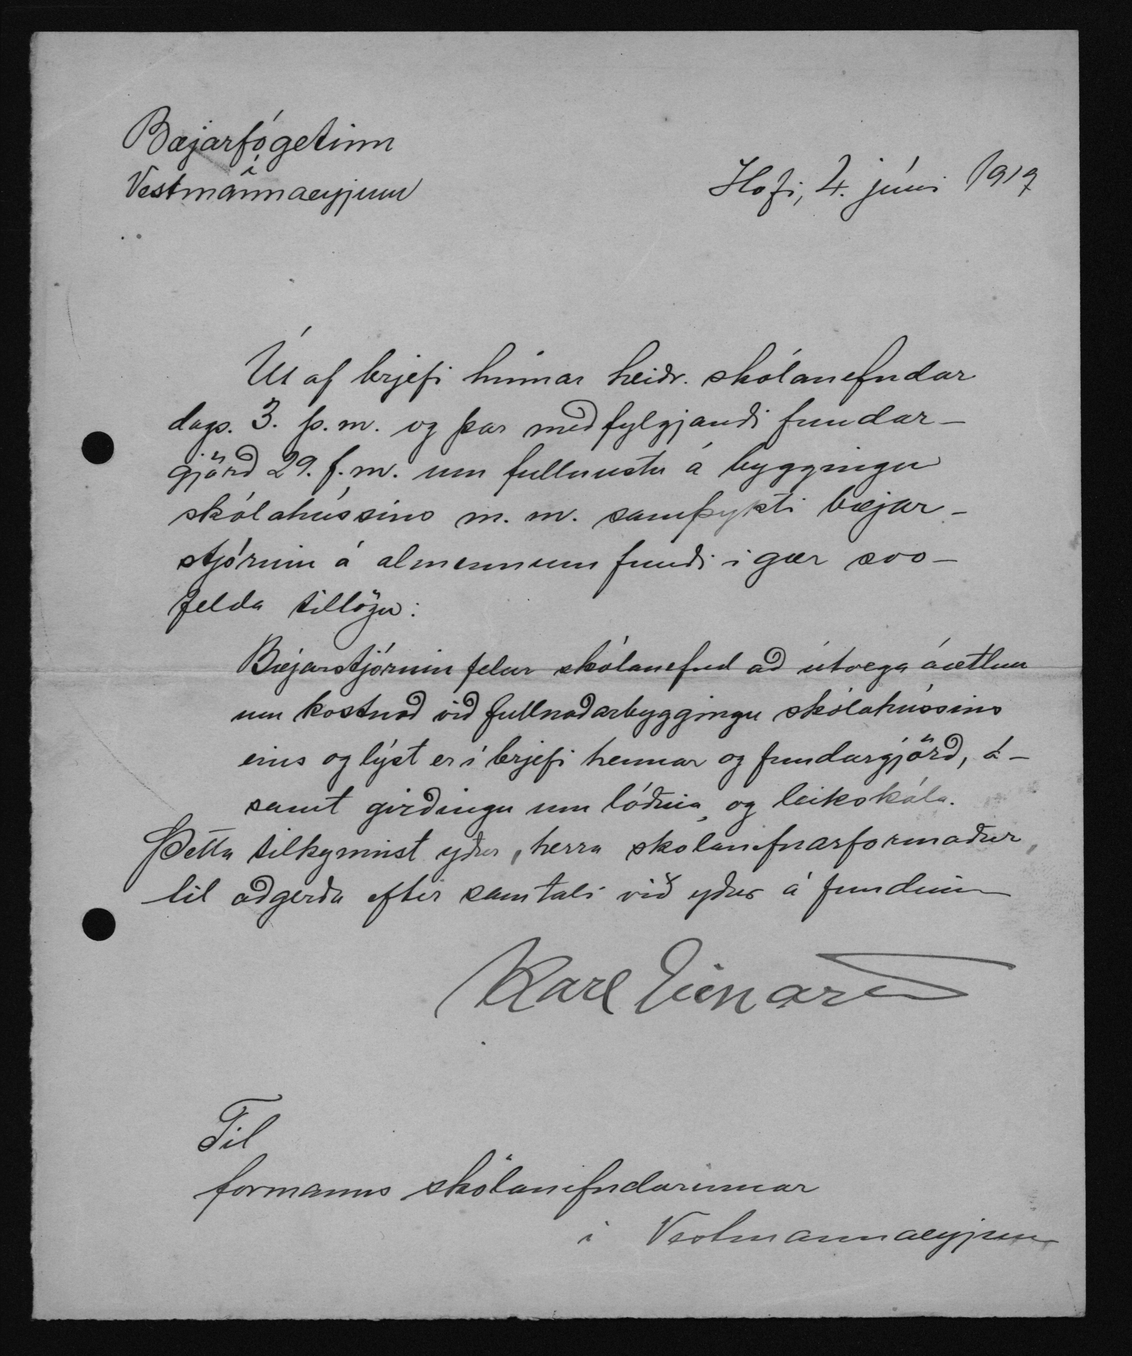 Bæjarfógetinn
í
Vestmannaeyjum
Hofi, 4. júní 1919
Út af brjefi hinnar heiðr. skólanefndar
dags. 3. þ.m. og þar medfylgjandi fundar-
gjörd 29. f.m. um fullnustu á byggingu
skólahússins m.m. samþykti bæjar-
stjórnin á almennum fundi í gær svo-
felda tillögu:
Bæjarstjórnin felur skólanefnd ad útvega áætlun
um kostnad vid fullnadarbyggingu skólahússins
eins og lýst er í brjefi hennar og fundargjörd, á-
samt girdingu um lóðina og leikskála.
Þetta tilkynnist yður, herra skólanefnarformaður,
til adgerda eftir samtali við yður á fundinum
Karl Einarss
Til
formanns skólanefndarinnar
í Vestmannaeyjum